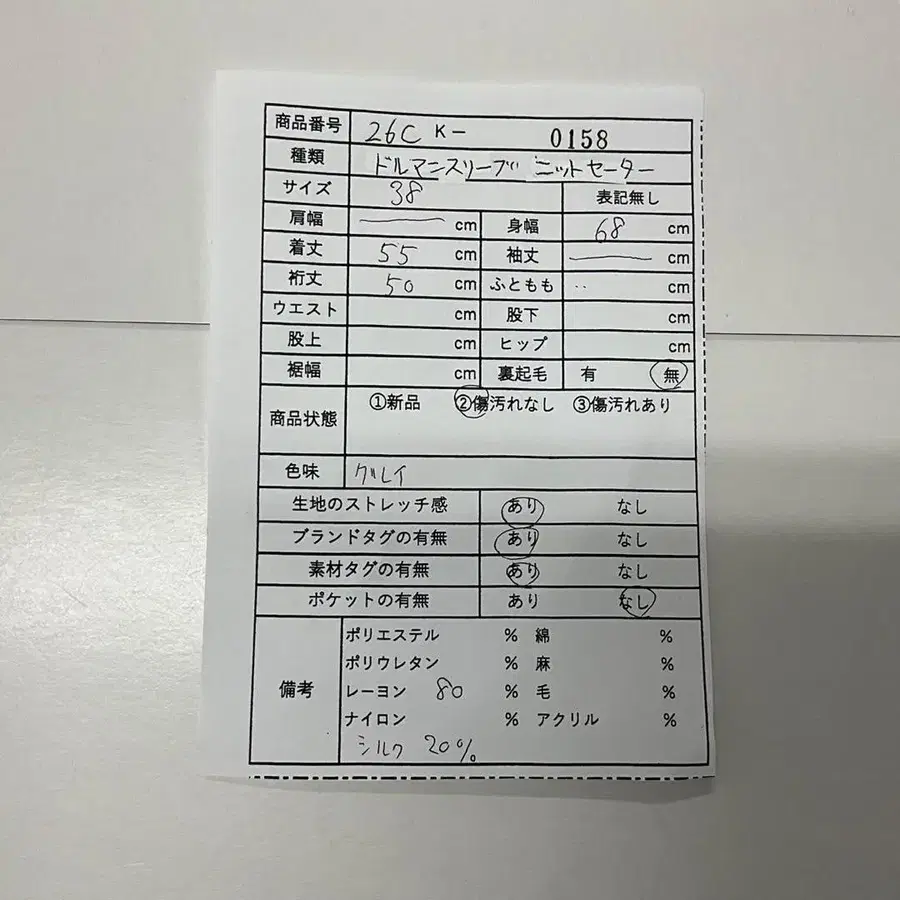 商品番号 26C K- 0158
種類 ドルマンスリーブ ニットセーター
サイズ 38 表記無し
肩幅 cm 身幅 68 cm
着丈 55 cm 袖丈 cm
裄丈 50 cm ふともも cm
ウエスト cm 股下 cm
股上 cm ヒップ cm
裾幅 cm 裏起毛 有 無
商品状態 ①新品 ②傷汚れなし ③傷汚れあり
色味 グレイ
生地のストレッチ感 あり なし
ブランドタグの有無 あり なし
素材タグの有無 あり なし
ポケットの有無 あり なし
備考
ポリエステル % 綿 %
ポリウレタン % 麻 %
レーヨン 80 % 毛 %
ナイロン % アクリル %
シルク 20%